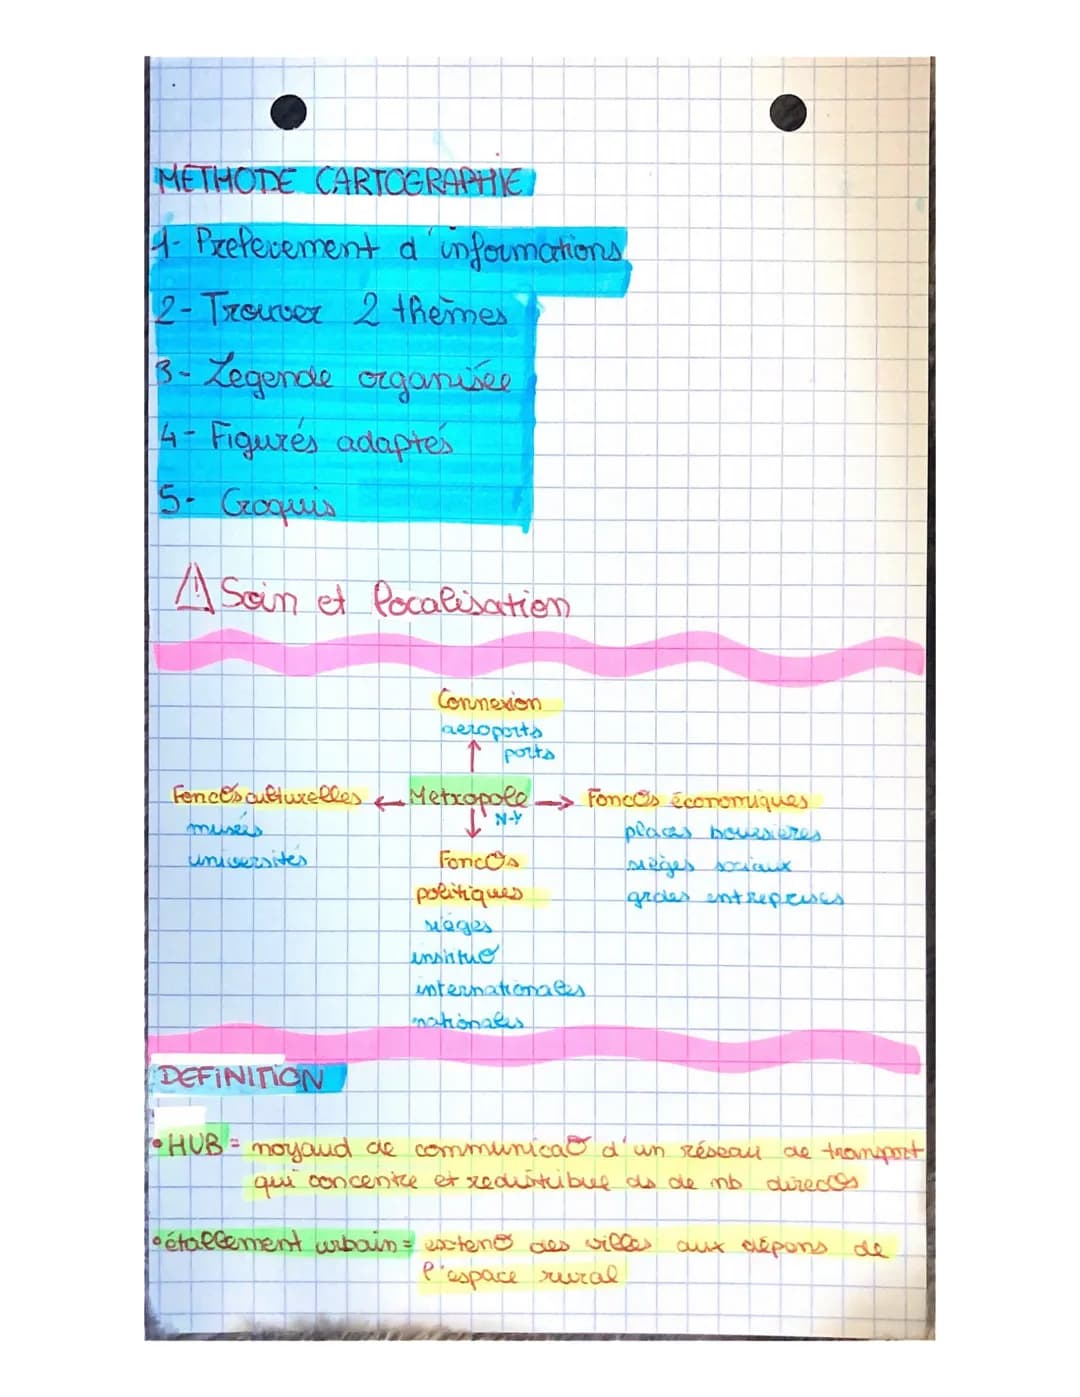 METHODE CARTOGRAPHIE
1- Prelevement d'informations
2- Trouver 2 thèmes
3- Legende organisée
4- Figurés adaptés
5- Croquis
⚠ Soin et localisation
Connexion
aeroports
ports
Foncøs culturelles ← Metropole → Foncøs économiques
N-Y
musées
universités
places boursieres
sièges sociaux
grdes entreprises
Foncøs
politiques
sièges
instituø
internationales
nationales
DEFINITION
• HUB = noyaud de communicaø d'un réseau de transport
qui concentre et redistribue ds de nb direcøs
• étallement urbain = extenø des villes aux dépons de
l'espace rural